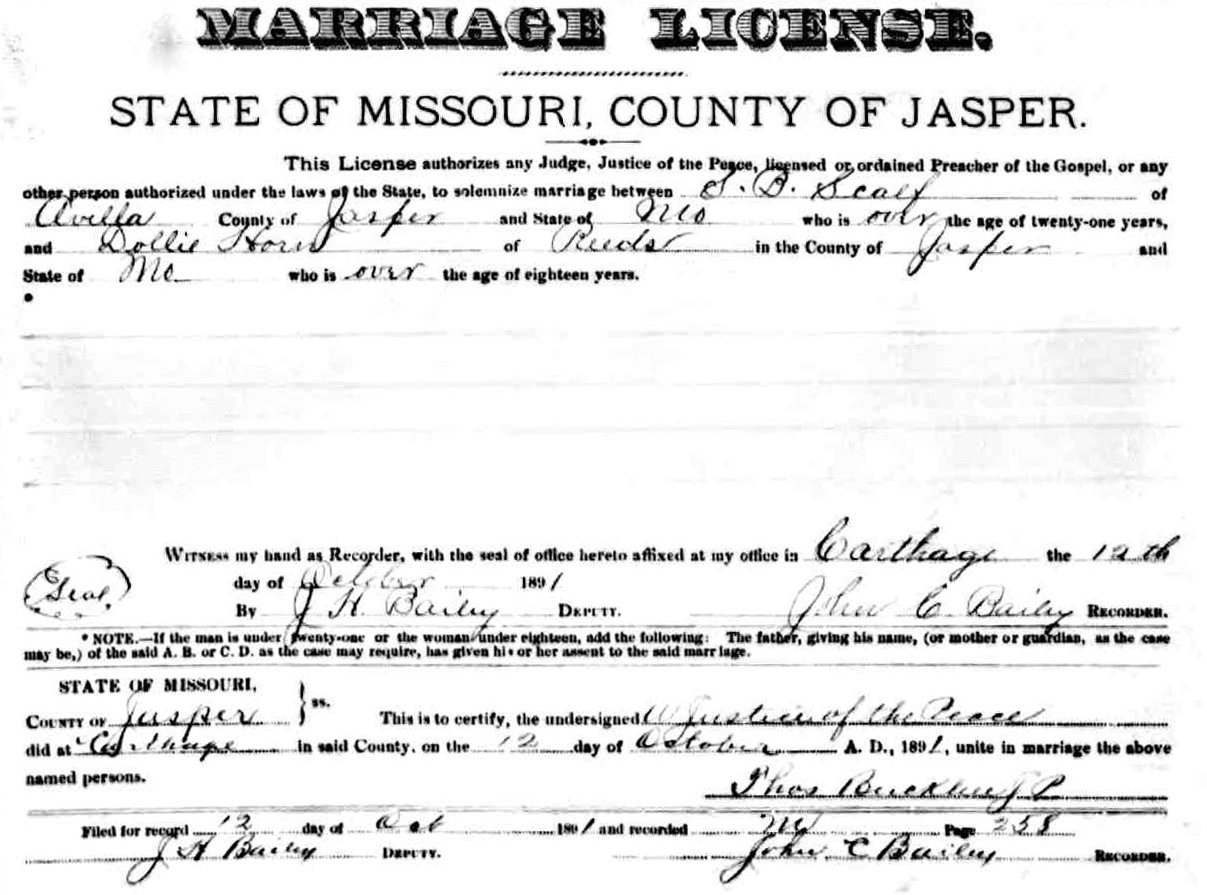 MARRIAGE LICENSE.
STATE OF MISSOURI, COUNTY OF JASPER.
This License authorizes any Judge, Justice of the Peace, licensed or ordained Preacher of the Gospel, or any
other person authorized under the laws of the State, to solemnize marriage between S. B. Scalf of
Avilla County of Jasper and State of Mo who is over the age of twenty-one years,
and Dollie Horn of Reeds in the County of Jasper and
State of Mo who is over the age of eighteen years.
*
WITNESS my hand as Recorder, with the seal of office hereto affixed at my office in Carthage the 12th
(Seal) day of October 1891
By J H Bailey DEPUTY. John C Bailey RECORDER.
* NOTE.—If the man is under twenty-one or the woman under eighteen, add the following: The father, giving his name, (or mother or guardian, as the case
may be,) of the said A. B. or C. D. as the case may require, has given his or her assent to the said marriage.
STATE OF MISSOURI,
COUNTY OF Jasper } ss. This is to certify, the undersigned a Justice of the Peace
did at Carthage in said County, on the 12 day of October A. D., 1891, unite in marriage the above
named persons.
Thos Buckley J P
Filed for record 12 day of Oct 1891 and recorded Page 258
J H Bailey DEPUTY. John C Bailey RECORDER.